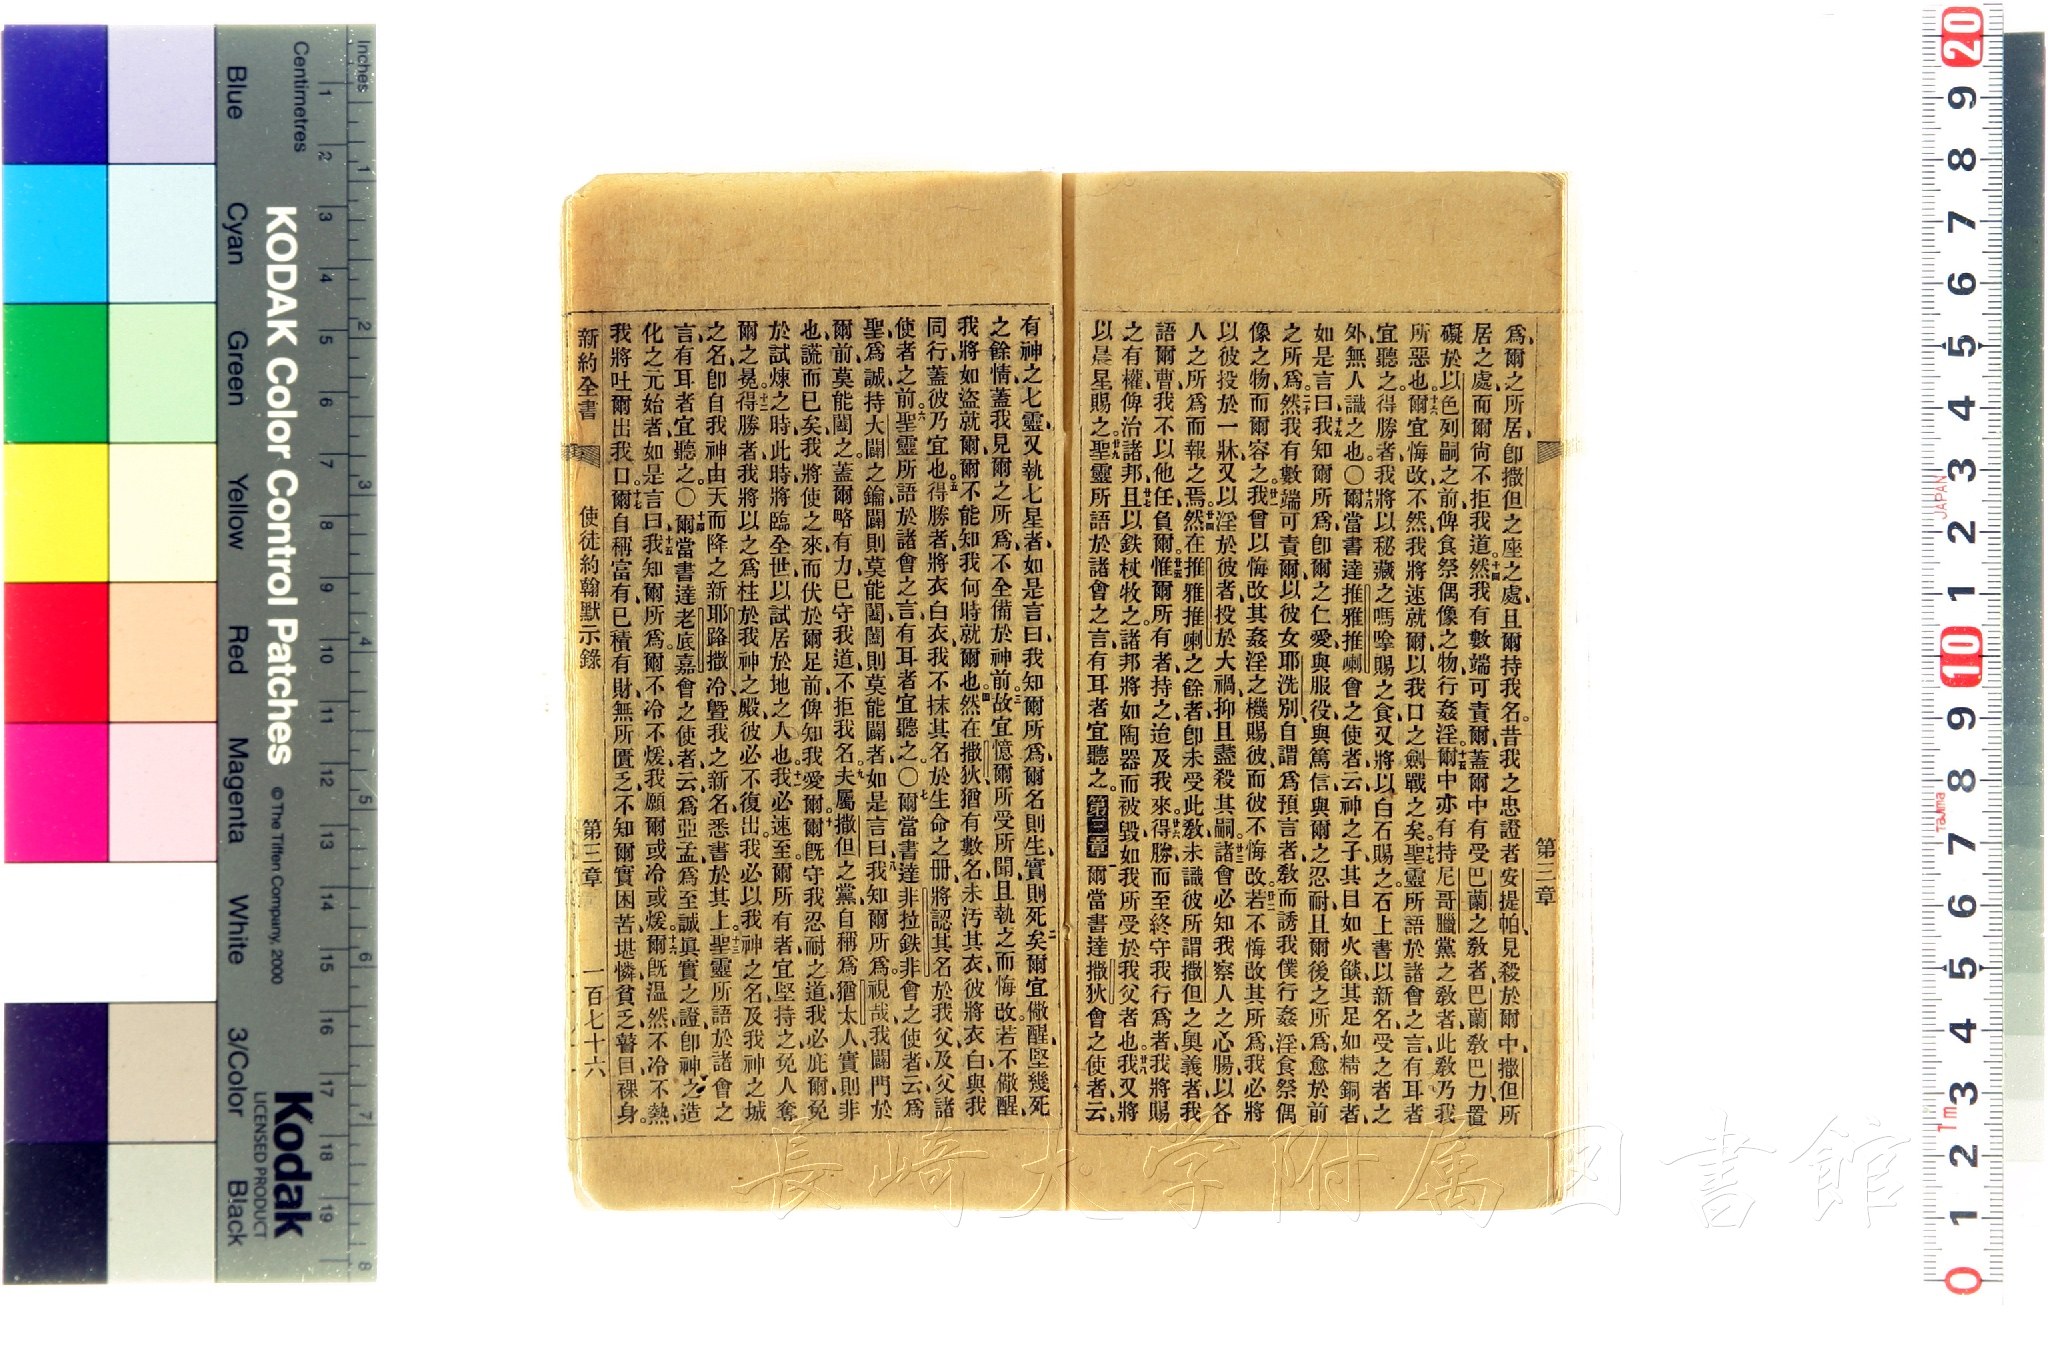 爲爾之所居、卽撒但之座之處、且爾持我名。昔我之忠證者安提帕、見殺於爾中、撒但所
居之處、而爾尚不拒我道。十四然我有數端可責爾、蓋爾中有受巴蘭之教者、巴蘭教巴力置
礙於以色列嗣之前、俾食祭偶像之物、行姦淫。十五爾中亦有持尼哥臘黨之教者、此教乃我
所惡也。十六爾宜悔改、不然、我將速就爾、以我口之劍戰之矣。十七聖靈所語於諸會之言、有耳者
宜聽之。得勝者、我將以秘藏之嗎拏賜之食、又將以白石賜之、石上書以新名、受之者之
外、無人識之也〇十八爾當書達推雅推喇會之使者云、神之子、其目如火燄、其足如精銅者、
如是言曰、十九我知爾所爲、卽爾之仁愛、與服役、與篤信、與爾之忍耐、且爾後之所爲、愈於前
之所爲。二十然我有數端可責爾、以彼女耶洗別、自謂爲預言者、教而誘我僕行姦淫、食祭偶
像之物、而爾容之。廿一我曾以悔改其姦淫之機賜彼、而彼不悔改。廿二若不悔改其所爲、我必將
以彼投於一牀、又以淫於彼者、投於大禍、抑且盡殺其嗣。廿三諸會必知我察人之心腸、以各
人之所爲而報之焉。廿四然在推雅推喇之餘者、卽未受此教、未識彼所謂撒但之奧義者、我
語爾曹、我不以他任負爾。廿五惟爾所有者、持之迨及我來。廿六得勝而至終守我行爲者、我將賜
之有權俾治諸邦。廿七且以鉄杖牧之、諸邦將如陶器而被毀、如我所受於我父者也。廿八我又將
以晨星賜之。廿九聖靈所語於諸會之言、有耳者宜聽之。第三章一爾當書達撒狄會之使者云、
第三章
有神之七靈、又執七星者、如是言曰、我知爾所爲、爾名則生、實則死矣。二爾宜儆醒、堅幾死
之餘情、蓋我見爾之所爲、不全備於神前。三故宜憶爾所受所聞、且執之而悔改。若不儆醒、
我將如盜就爾、爾不能知我何時就爾也。四然在撒狄、猶有數名、未汚其衣、彼將衣白與我
同行、蓋彼乃宜也。五得勝者、將衣白衣、我不抹其名於生命之册、將認其名於我父、及父諸
使者之前。六聖靈所語於諸會之言、有耳者宜聽之〇七爾當書達非拉鉄非會之使者云、爲
聖、爲誠、持大闢之鑰、闢則莫能闔、闔則莫能闢者、如是言曰、八我知爾所爲、視哉、我闢門於
爾前、莫能闔之、蓋爾略有力、已守我道、不拒我名。九夫屬撒但之黨、自稱爲猶太人、實則非
也、謊而已矣、我將使之來而伏於爾足前、俾知我愛爾。十爾旣守我忍耐之道、我必庇爾免
於試煉之時、此時將臨全世、以試居於地之人也。十一我必速至、爾所有者、宜堅持之、免人奪
爾之冕。十二得勝者、我將以之爲柱於我神之殿、彼必不復出、我必以我神之名、及我神之城
之名、卽自我神由天而降之新耶路撒冷、曁我之新名、悉書於其上。十三聖靈所語於諸會之
言、有耳者宜聽之。〇十四爾當書達老底嘉會之使者云、爲亞孟、爲至誠眞實之證、卽神之造
化之元始者、如是言曰、十五我知爾所爲、爾不冷不煖、我願爾或冷或煖、十六爾旣溫然不冷不熱、
我將吐爾出我口。十七爾自稱富有、已積有財、無所匱乏、不知爾實困苦、堪憐、貧乏、瞽目、裸身。
新約全書　使徒約翰默示錄　第三章　一百七十六
長崎大学附属図書館
Inches
Centimetres
KODAK Color Control Patches
© The Tiffen Company, 2000
Kodak
LICENSED PRODUCT
Blue Cyan Green Yellow Red Magenta White 3/Color Black
1 2 3 4 5 6 7 8
1 2 3 4 5 6 7 8 9 10 11 12 13 14 15 16 17 18 19
20 9 8 7 6 5 4 3 2 1 10 9 8 7 6 5 4 3 2 1 0
JAPAN
Tajima
Tm